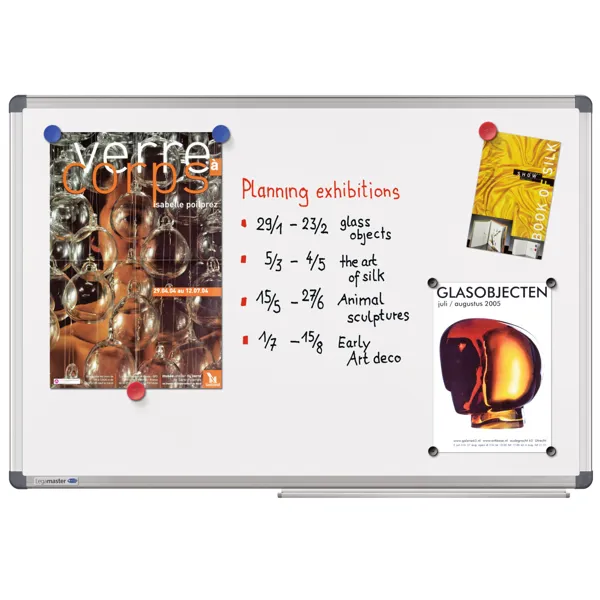 verre
à
corps
isabelle poilprez
29.04.04 au 12.07.04
Planning exhibitions
29/1 - 23/2 glass
objects
5/3 - 4/5 the art
of silk
15/5 - 27/6 Animal
sculptures
1/7 - 15/8 Early
Art deco
SHOW
BOOK OF SILK
GLASOBJECTEN
juli / augustus 2005
legamaster